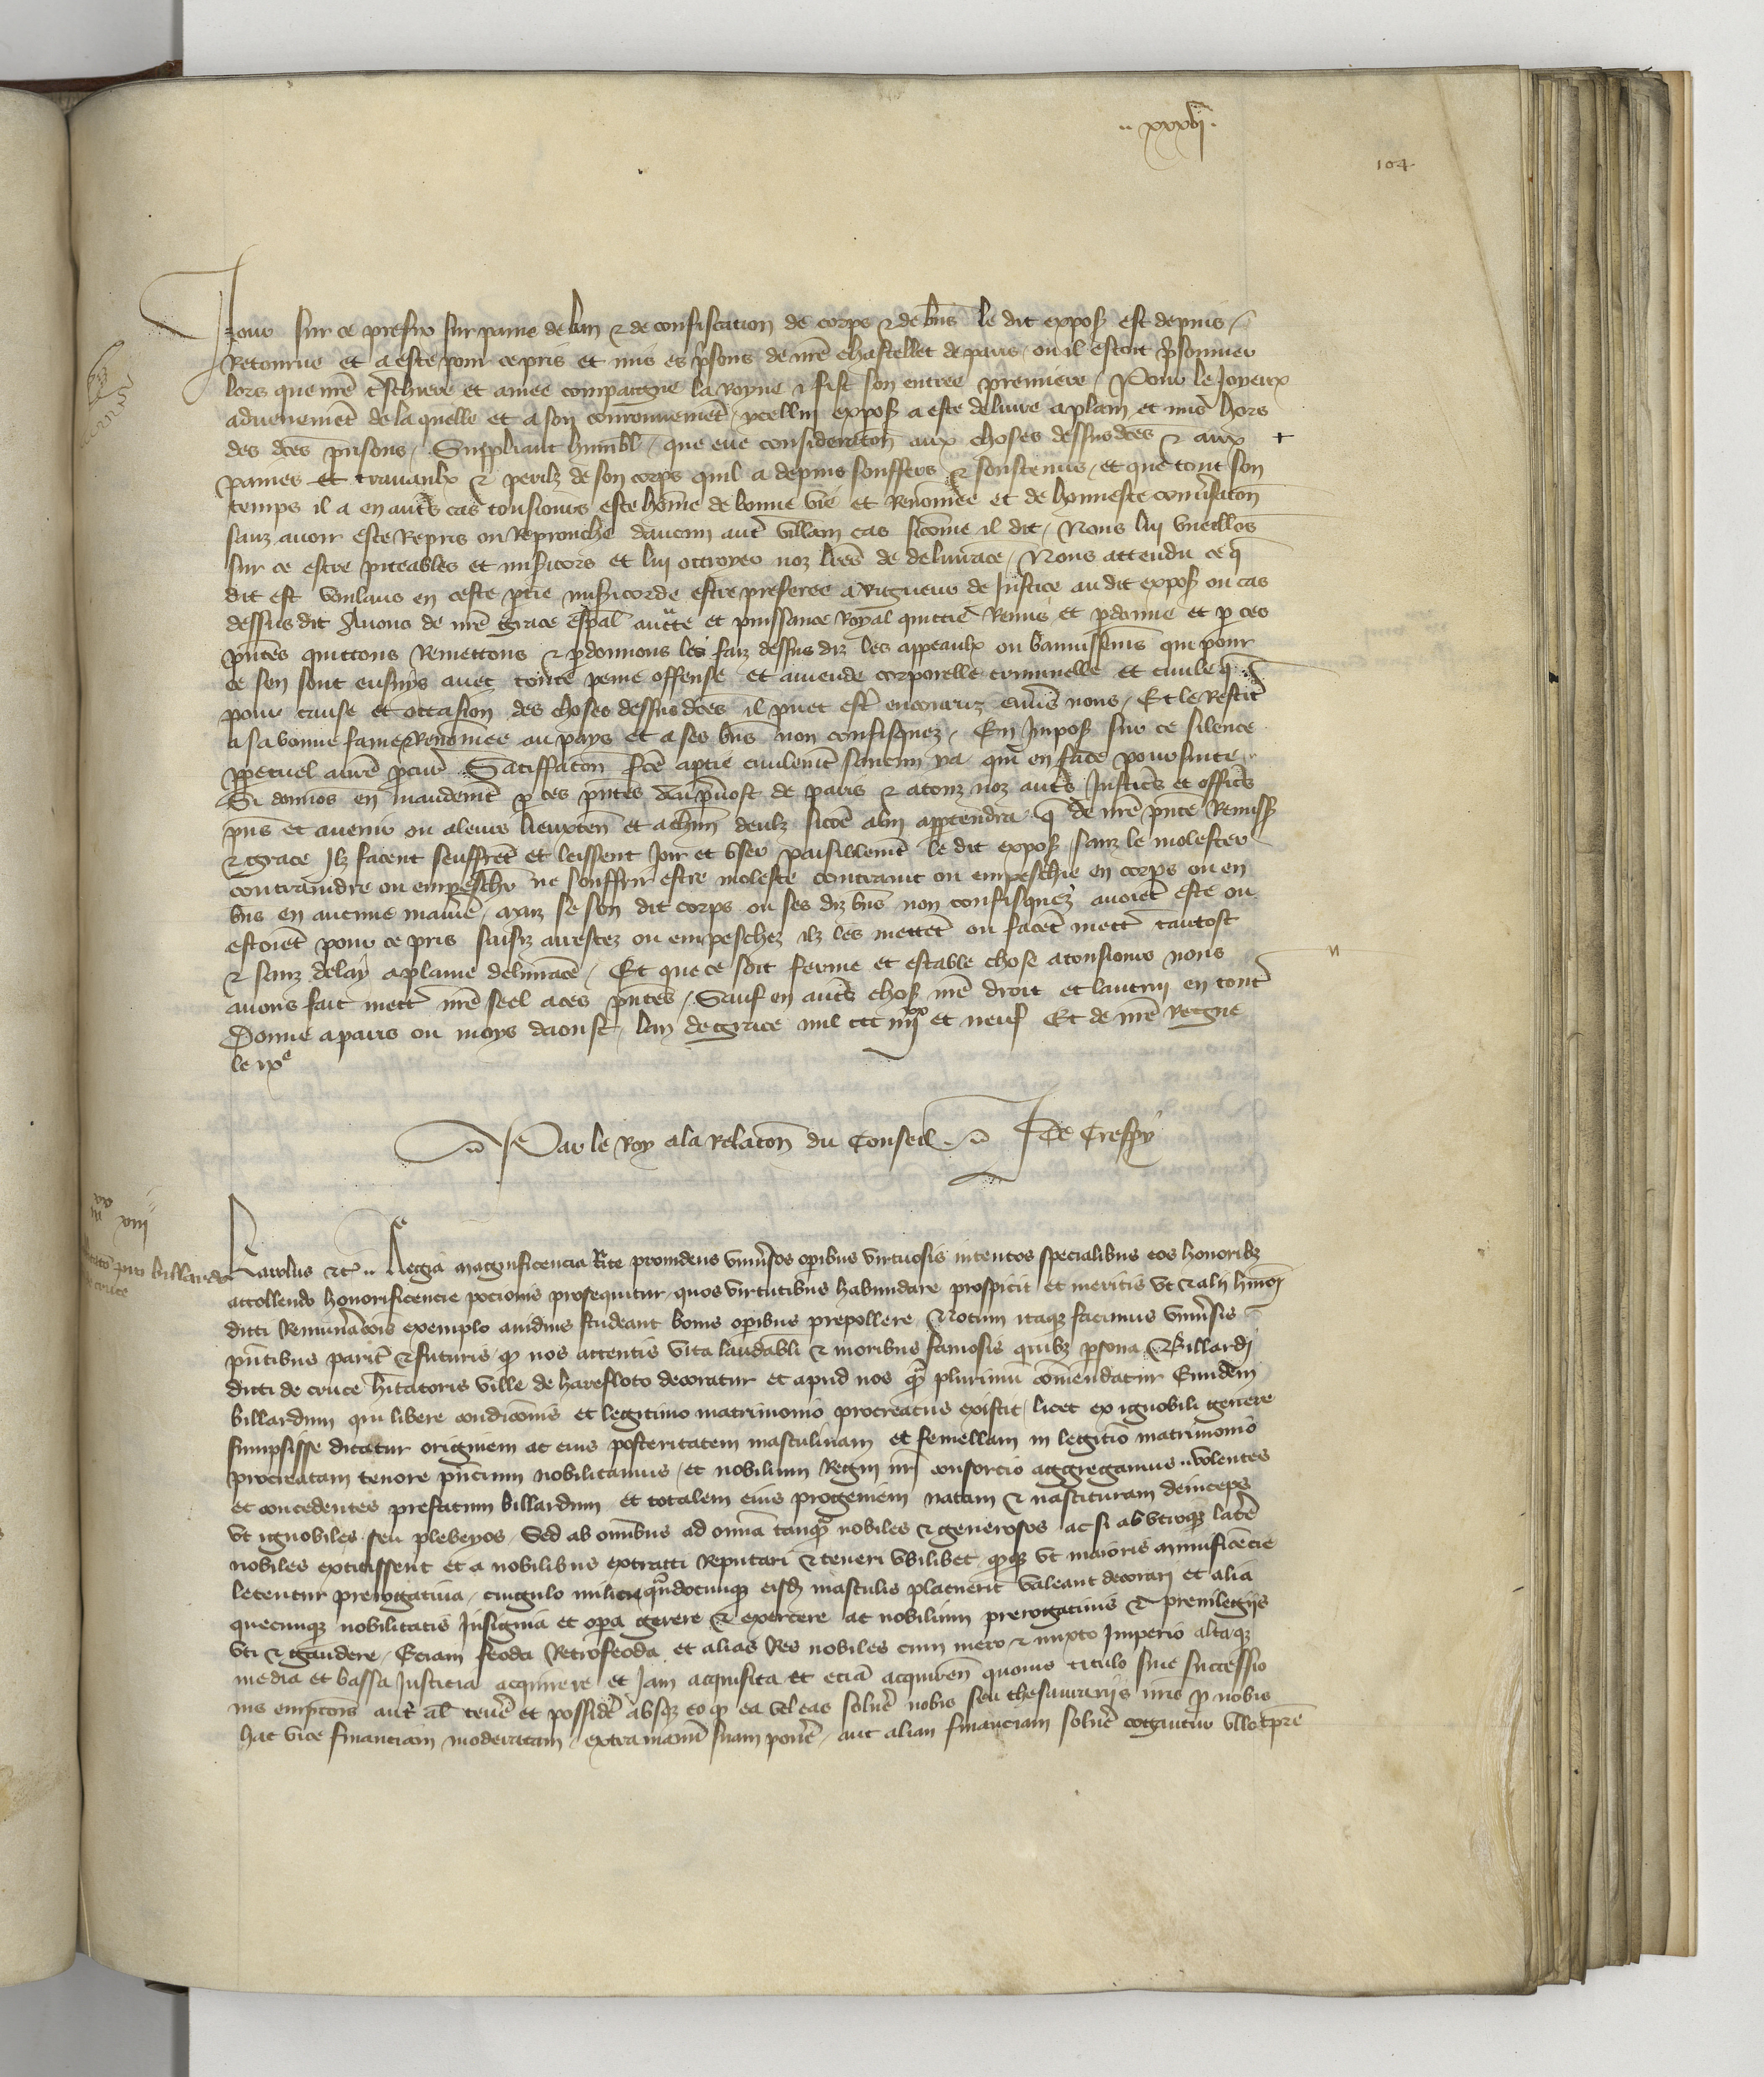 .. xxxvj.
104
Jour sur ce prefix sur paine de ban & de confiscation de corps & de bns le dit expos est depuis
Retourne et a este pour ce pris et mis es prsons de nre chastellet de paris ou il estoit prsonnier
lors que nre tschiere et amee compaigne la Royne y fist son entree premiere / Pour le Joyeux
advenement de la quelle et a son couronnement ycellui expos a este delivre a plain et mis hors
des dces prisons / Suppliant humbl que eue consideraton aux choses dessusdces & aux +
paines et travaulx & perilz de son corps quil a depuis souffers & soustenus / et que tout son
temps il a en autrs cas tousiours este home de bonne vie et Renomee et de honneste conusaton
sanz avoir este Repris ou Reprouche daucun autre villain cas sicome il dit / Nous lui vueillos
sur ce estre piteables et misicors et lui ottroyer noz lres de delivrace / Nous attendu ce q
dit est voulans en ceste ptie misicorde estre preferee a Rigueur de Justice au dit expos ou cas
dessus dit Avons de nre grace espal auctte et puissance Royal quittie Remis et pdonne et p ces
pntes quittons Remettons & pdonnons les faiz dessus diz les appeaulx ou bannissemes qui pour
ce sen sont ensuys avec toute peine offense et amende corporelle criminelle et civile q
pour cause et occasion des choses dessus dces il puet estr encouruz envers nous / Et le Restit
a sa bonne fame & Renomee au pays et a ses bns non confisquez / En Impos sur ce silence
ppetuel a nre pcur Satiffaton fce aptie civilemt saucun ya qui en face poursuite
Si donnos en mandemt p ces pntes au pvost de paris & a touz noz autrs Justics et offics
pns et avenir ou a leurs lieuxten et a chun deulx sicoe a lui apptendra q de nre pnte Remiss
& grace Ilz facent seuffret et leissent Joir et user paisiblemt le dit expos sanz le molester
contraindre ou empescher ne souffrir estre moleste contraint ou empeschie en corps ou en
bns en aucune maniere / axaz se son dit corps ou ses diz bns non confisquez avoiet este ou
estoiet pour ce pris saisiz arrestez ou empeschez ilz les mettet ou facet mettr tantost
& sanz delay a plaine delivrace / Et que ce soit ferme et estable chose a tousiours nous
avons fait mettr nre seel a ces pntes / Sauf en autrs chos nre droit et lautruy en tout
Donne a paris ou moys daoust lan de grace mil ccc iiijxx et neuf Et de nre Regne
le ixe
Par le Roy a la Relaton du Conseil J de Crespy
xx
iiij xviij
billardo
de cruce
Karolus &c. Regia magnificencia Rite providens univsos opibus virtuosis intentos specialibus eos honoribz
attollendo honorificencie pocioris prosequitur quos virtutibus habundare prospicit et meritis ut & alij hmoi
dicti Remunacois exemplo avidius studeant bonis opibus prepollere Notum itaqz facimus univsis
pntibus parit & futuris / q nos attentis vita laudabli & moribus famosis quibz psona Billardj
dicti de cruce hitatoris ville de harefloto decoratur et apud nos qm plurimu comendatur Eundem
billardum qui libere condicois et legitimo matrimonio procreatus existit / licet ex ignobili genere
sumpsisse dicatur originem ac eius posteritatem masculinam et femellam in legitio matrimonio
procreatam tenore pncium nobilitamus / et nobilium Regni nri consorcio aggregamus .. volentes
et concedentes prefatum billardum et totalem eius progeniem natam & nascituram deinceps
ut ignobiles seu plebeyos Sed ab omibus ad omia tanqm nobiles & generosos ac si ab utroqz late
nobiles extitissent et a nobilibus extracti Reputari & teneri ubilibet / qqz ut maioris munificecie
letentur prerogativa / cingulo milicie qndocumqz eisd masculis placuerit valeant decorari et alia
quecumqz nobilitatis Insignia et opa gerere & exercere ac nobilium prerogativis & previlegiis
uti & gaudere / Eciam feoda Retrofeoda et alias Res nobiles cum mero & mixto Imperio altaqz
media et bassa Justicia acquirere et Jam acquisita et ecia acquiren quovis titulo sive successio
nis empcois aut al tenere et possidere absqz eo q ea vel eas solvere nobis seu thesaurariis nris p nobis
hac vice financiam moderatam / extra manu suam ponere / aut aliam financiam solvere cogantur ullo tpre